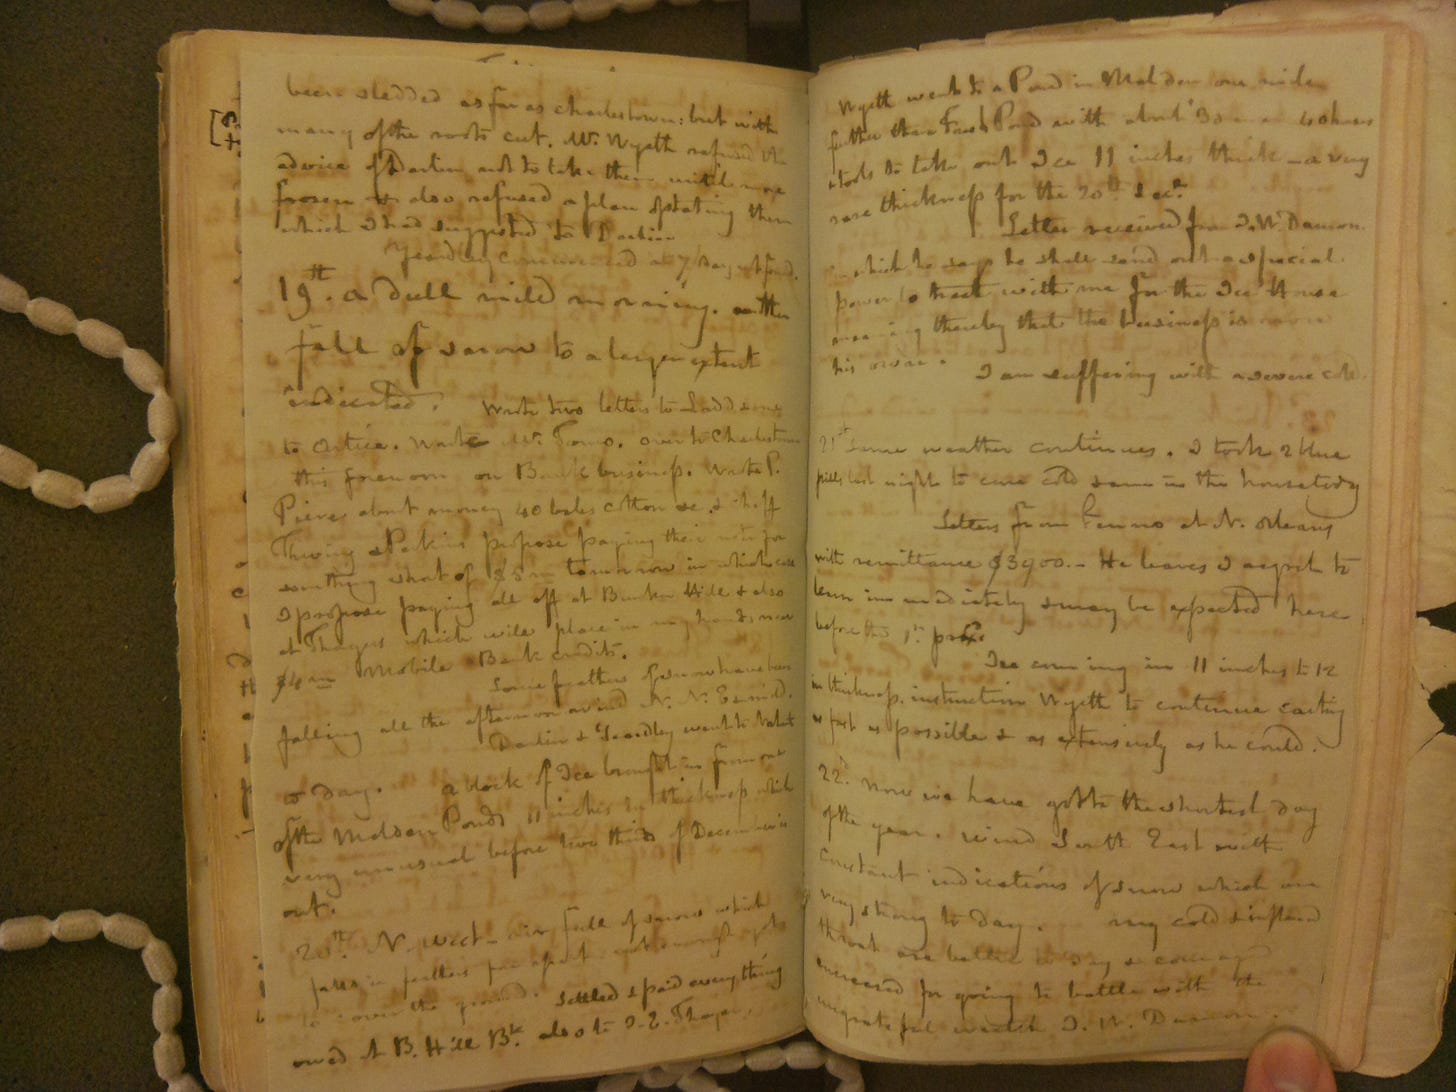 been sledded as far as Charlestown; but with
many of the roots cut. Mr. Wyeth refused the
advice of Darlin not to take them until more
frozen & also refused a plan of stating them
which I had suggested to Darlin
Yeardley commenced a 7 Day
19th. a dull mild morning. another
fall of snow to a larger extent
indicated. Wrote two letters to Ladd & one
to Artica. Wrote Mr. Tomo. over to Charlestown
this forenoon on Bank business. Wrote P.
Pierce about money 40 bales cotton &c. &
Thwing & Perkins propose paying their note for
something short of $5m tomorrow in which case
I propose paying all off at Bunker Hill & also
at Thayers which will place in my hands near
$4m Mobile Bank credits.
Some feathers of snow have been
falling all the afternoon wind N. N.
Darlin & Yeardley went to
to day. a block of Ice brought in from one
of the Malden Ponds 11 inches in thickness which
very unusual before two thirds of December is
out.
20th. N. West - airy full of snow which
falls in feathers far apart not enough yet
to cover the ground. Settled & paid everything
owed at B. Hill Bk. also to I. E. Thayer.
Wyeth went to a Pond in Malden one mile
further than Fresh Pond with about 30 men 40 horses
& tools to take out Ice 11 inches thick - a very
rare thickness for the 20th Decr.
Letter received from I. W. Damon.
in which he says he shall send out a special
power to treat with me for the Ice House
meaning thereby that the business is
his own. I am suffering with a severe cold.
21st Same weather continues. I took 2 blue
pills last night to cure cold & am in the house today
Letters from Fenno at N. Orleans
with remittance $3900. - He leaves I expect to
learn immediately & may be expected here
before the 1st. prox.
Ice coming in 11 inches to 12
in thickness. instruction Wyeth to continue cutting
as fast as possible & as extensively as he could.
22d. Now we have got to the shortest day
of the year. wind South East with
constant indications of snow which are
very strong to day. my cold & inflamed
throat are better to day & courage
encreased for going to battle with the
ungrateful wretch I. W. Damon.